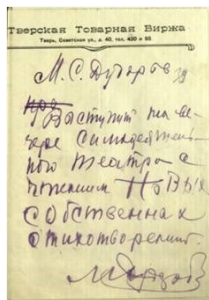 Тверская Товарная Биржа
Тверь, Советская ул., д. 40, тел. 400 и 68
М. С. Дударов
Выступит на ве-
чере самодеятель-
ного театра с
чтением новых
собственных
стихотворений.
М Дударов